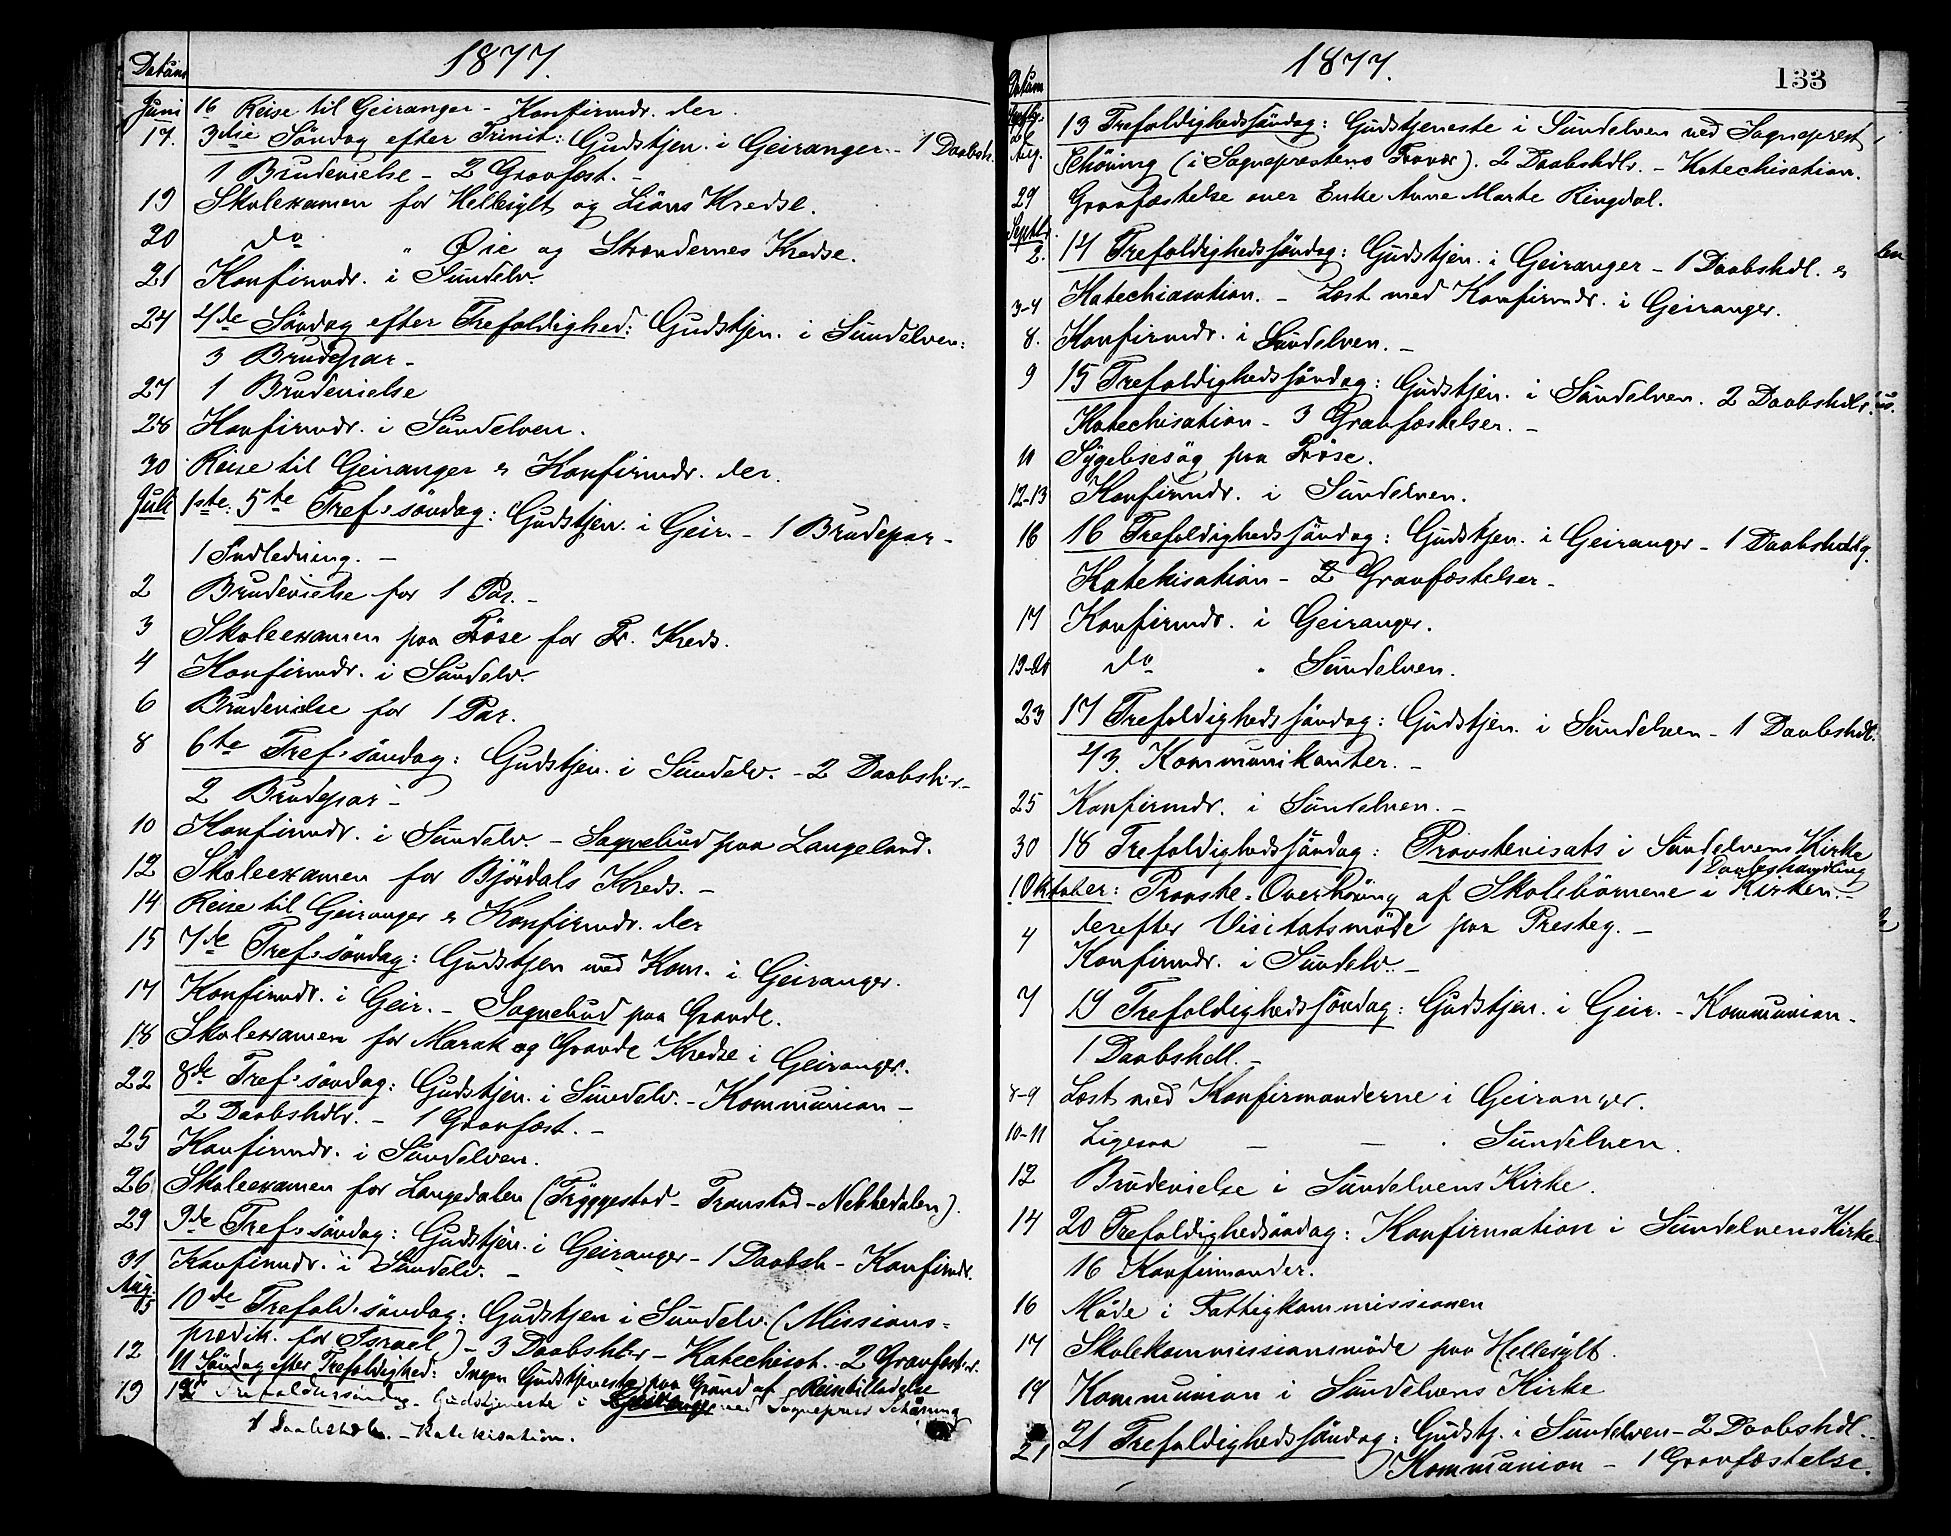 Datum
1877.
Juni 16 Reise til Geiranger - Konfirmdr. der.
17. 3die Söndag efter Trinit: Gudstjen. i Geiranger - 1 Daabsh.
1 Brudevielse - 2 Gravfæst. -
19 Skoleexamen for Hellesylt og Liöns Kredse.
20 do " Øie og Strandernes Kredse.
21 Konfirmdr. i Sundelv.
24 4de Söndag efter Trefoldighed: Gudstjen. i Sundelven:
3 Brudepar -
27 1 Brudevielse
28 Konfirmdr. i Sundelven.
30 Reise til Geiranger & Konfirmdr. der.
Juli 1ste: 5te Tref.söndag: Gudstjen. i Geir. - 1 Brudepar -
1 Indledning. -
2 Brudevielse for 1 Par. -
3 Skoleexamen paa Tröse for Tr. Kreds.
4 Konfirmdr. i Sundelv.
6 Brudevielse for 1 Par.
8 6te Tref.söndag: Gudstjen. i Sundelv. - 2 Daabsh-r. -
2 Brudepar -
10 Konfirmdr. i Sundelv. - Sognebud paa Langeland.
12 Skoleexamen for Björdals Kreds. -
14 Reise til Geiranger & Konfirmdr. der
15 7de Tref.söndag: Gudstjen med Kom. i Geiranger.
17 Konfirmdr. i Geir. - Sognebud paa Grande.
18 Skoleexamen for Marak og Grande Kredse i Geiranger.
22 8de Tref.söndag: Gudstjen. i Sundelv. - Kommunion -
2 Daabshdlr. - 1 Gravfæst. -
25 Konfirmdr. i Sundelven.
26 Skoleexamen for Langedalen (Tryggestad - Tronstad - Nebbedalen).
29 9de Tref.söndag: Gudstjen. i Geiranger - 1 Daabsh - Konfirmdr.
31 Konfirmdr. i Sundelv. -
Aug. 5 10de Trefold.söndag: Gudstjen i Sundelv. (Missions-
prædik. for Israel) - 3 Daabshlr - Katechisat. - 2 Gravfæst-r.
12 11 Söndag efter Trefoldighed: Ingen Gudstjeneste paa Grund af
19 12 Trefoldhedssöndag. Gudstjeneste i ved Sogneprest Schöning
Daabshdlr. - Katekisation.
Datum
1877.
133
26 Aug. 13 Trefoldighedssöndag: Gudstjeneste i Sundelven ved Sogneprest
Schöning (i Sogneprestens Fravær). 2 Daabshdlr. - Katechisation.
29 Gravfæstelse over Enke Anne Marte Ringdal.
Septbr. 2. 14 Trefoldighedssöndag: Gudstjen. i Geiranger - 1 Daabshdl. &
Katechisation. -
3-4 Læst med Konfirmdr. i Geiranger.
8. Konfirmdr. i Sundelven. -
9 15 Trefoldighedssöndag: Gudstjen. i Sundelven. 2 Daabshdlr.
Katechisation - 3 Gravfæstelser. -
11 Sygebesög paa Tröse.
12-13 Konfirmdr. i Sundelven.
16 16 Trefoldighedssöndag: Gudstjen. i Geiranger - 1 Daabshdlg.
Katekisation - 2 Gravfæstelser -
17 Konfirmdr. i Geiranger.
19-20 do " Sundelven.
23 17 Trefoldighedssöndag: Gudstjen. i Sundelven - 1 Daabshdl.
43. Kommunikanter. -
25 Konfirmdr. i Sundelven. -
30 18 Trefoldighedssöndag: Provstevisats i Sundelvens Kirke
1 Daabshandling
1 Oktober: Provste-Overhöring af Skolebörnene i Kirken. -
derefter Visitatsmöde paa Presteg. -
4 Konfirmdr. i Sundelv. -
7 19 Trefoldighedssöndag: Gudstjen. i Geir. - Kommunion -
1 Daabshdl. -
8-9 Læst med Konfirmanderne i Geiranger.
10-11 Ligesaa - - " Sundelven.
12 Brudevielse i Sundelvens Kirke.
14 20 Trefoldighedsöndag: Konfirmation i Sundelvens Kirke
16 Konfirmander.
16 Möde i Fattigkommissionen
17 Skolekommissionsmöde paa Hellesylt.
19 Kommunion i Sundelvens Kirke
21 21 Trefoldighedssöndag: Gudstj. i Sundelven - 2 Daabshdl. -
Kommunion - 1 Gravfæstelse.